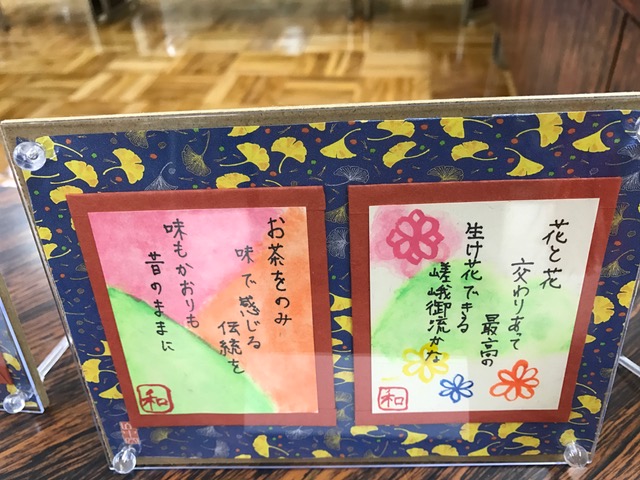 花と花
交わりあって
最高の
生け花できる
嵯峨御流かな
和
お茶をのみ
味で感じる
伝統を
味もかおりも
昔のままに
和